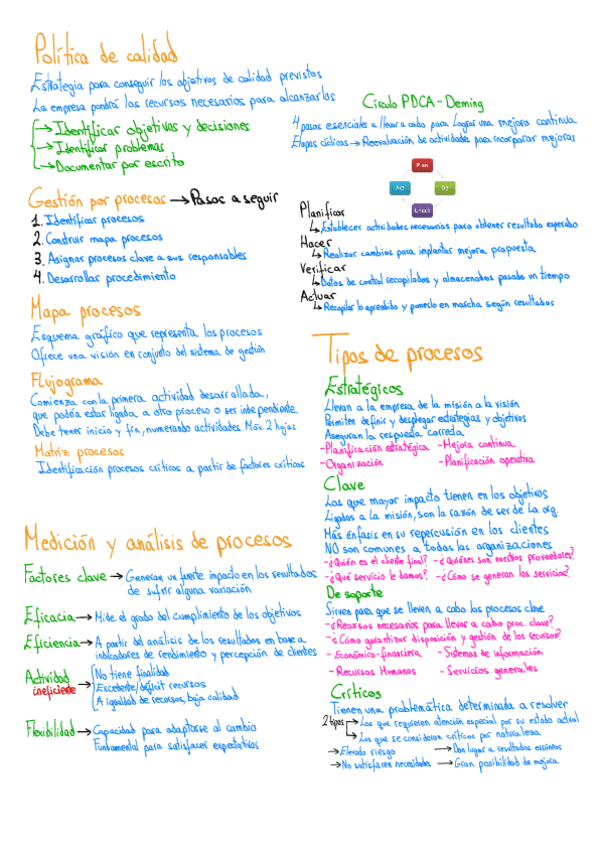 Política de calidad
Estrategia para conseguir los objetivos de calidad previstos
La empresa pondrá los recursos necesarios para alcanzarlos
→ Identificar objetivos y decisiones
→ Identificar problemas
→ Documentar por escrito
Gestión por procesos → Pasos a seguir
1. Identificar procesos
2. Construir mapa procesos
3. Asignar procesos clave a sus responsables
4. Desarrollar procedimiento
Mapa procesos
Esquema gráfico que representa los procesos
Ofrece una visión en conjunto del sistema de gestión
Flujograma
Comienza con la primera actividad desarrollada,
que podría estar ligada a otro proceso o ser independiente.
Debe tener inicio y fin, numerando actividades. Máx. 2 hojas
Matriz procesos
Identificación procesos críticos a partir de factores críticos
Medición y análisis de procesos
Factores clave → Generan un fuerte impacto en los resultados
de sufrir alguna variación
Eficacia → Mide el grado del cumplimiento de los objetivos
Eficiencia → A partir del análisis de los resultados en base a
indicadores de rendimiento y percepción de clientes
Actividad ineficiente →
No tiene finalidad
Excedente/déficit recursos
A igualdad de recursos, baja calidad
Flexibilidad → Capacidad para adaptarse al cambio
Fundamental para satisfacer expectativas
Círculo PDCA - Deming
4 pasos esenciales a llevar a cabo para lograr una mejora continua
Etapas cíclicas → Reevaluación de actividades para incorporar mejoras
Plan
Act
Do
Check
Planificar
Establecer actividades necesarias para obtener resultado esperado
Hacer
Realizar cambios para implantar mejora propuesta
Verificar
Datos de control recopilados y almacenados pasado un tiempo
Actuar
Recopilar lo aprendido y ponerlo en marcha según resultados
Tipos de procesos
Estratégicos
Llevan a la empresa de la misión a la visión
Permiten definir y desplegar estrategias y objetivos
Aseguran la respuesta correcta
- Planificación estratégica - Mejora continua
- Organización - Planificación operativa
Clave
Los que mayor impacto tienen en los objetivos
Ligados a la misión, son la razón de ser de la org.
Más énfasis en su repercusión en los clientes
NO son comunes a todas las organizaciones
- ¿Quién es el cliente final? - ¿Quiénes son nuestros proveedores?
- ¿Qué servicio le damos? - ¿Cómo se generan los servicios?
De soporte
Sirven para que se lleven a cabo los procesos clave
- ¿Recursos necesarios para llevar a cabo proc. clave?
- ¿Cómo garantizar disposición y gestión de los recursos?
- Económico-financiera - Sistemas de información
- Recursos Humanos - Servicios generales
Críticos
Tienen una problemática determinada a resolver
2 tipos → Los que requieren atención especial por su estado actual
→ Los que se consideran críticos por naturaleza
→ Elevado riesgo → Dan lugar a resultados erróneos
→ No satisfacen necesidades → Gran posibilidad de mejora